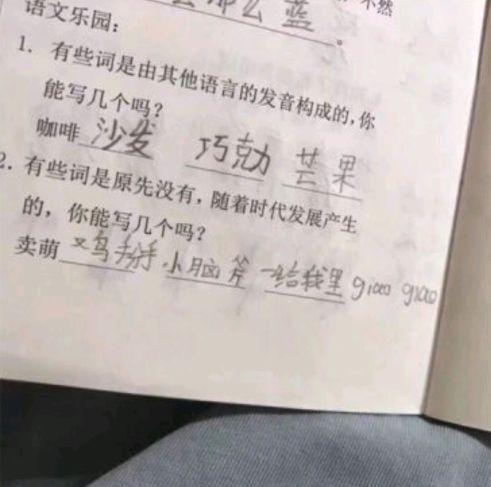 么那么蓝。不然
语文乐园：
1. 有些词是由其他语言的发音构成的，你
能写几个吗？
咖啡 沙发 巧克力 芒果
2. 有些词是原先没有，随着时代发展产生
的，你能写几个吗？
卖萌 又鸟掰手 小脑斧 一给我里 giao giao